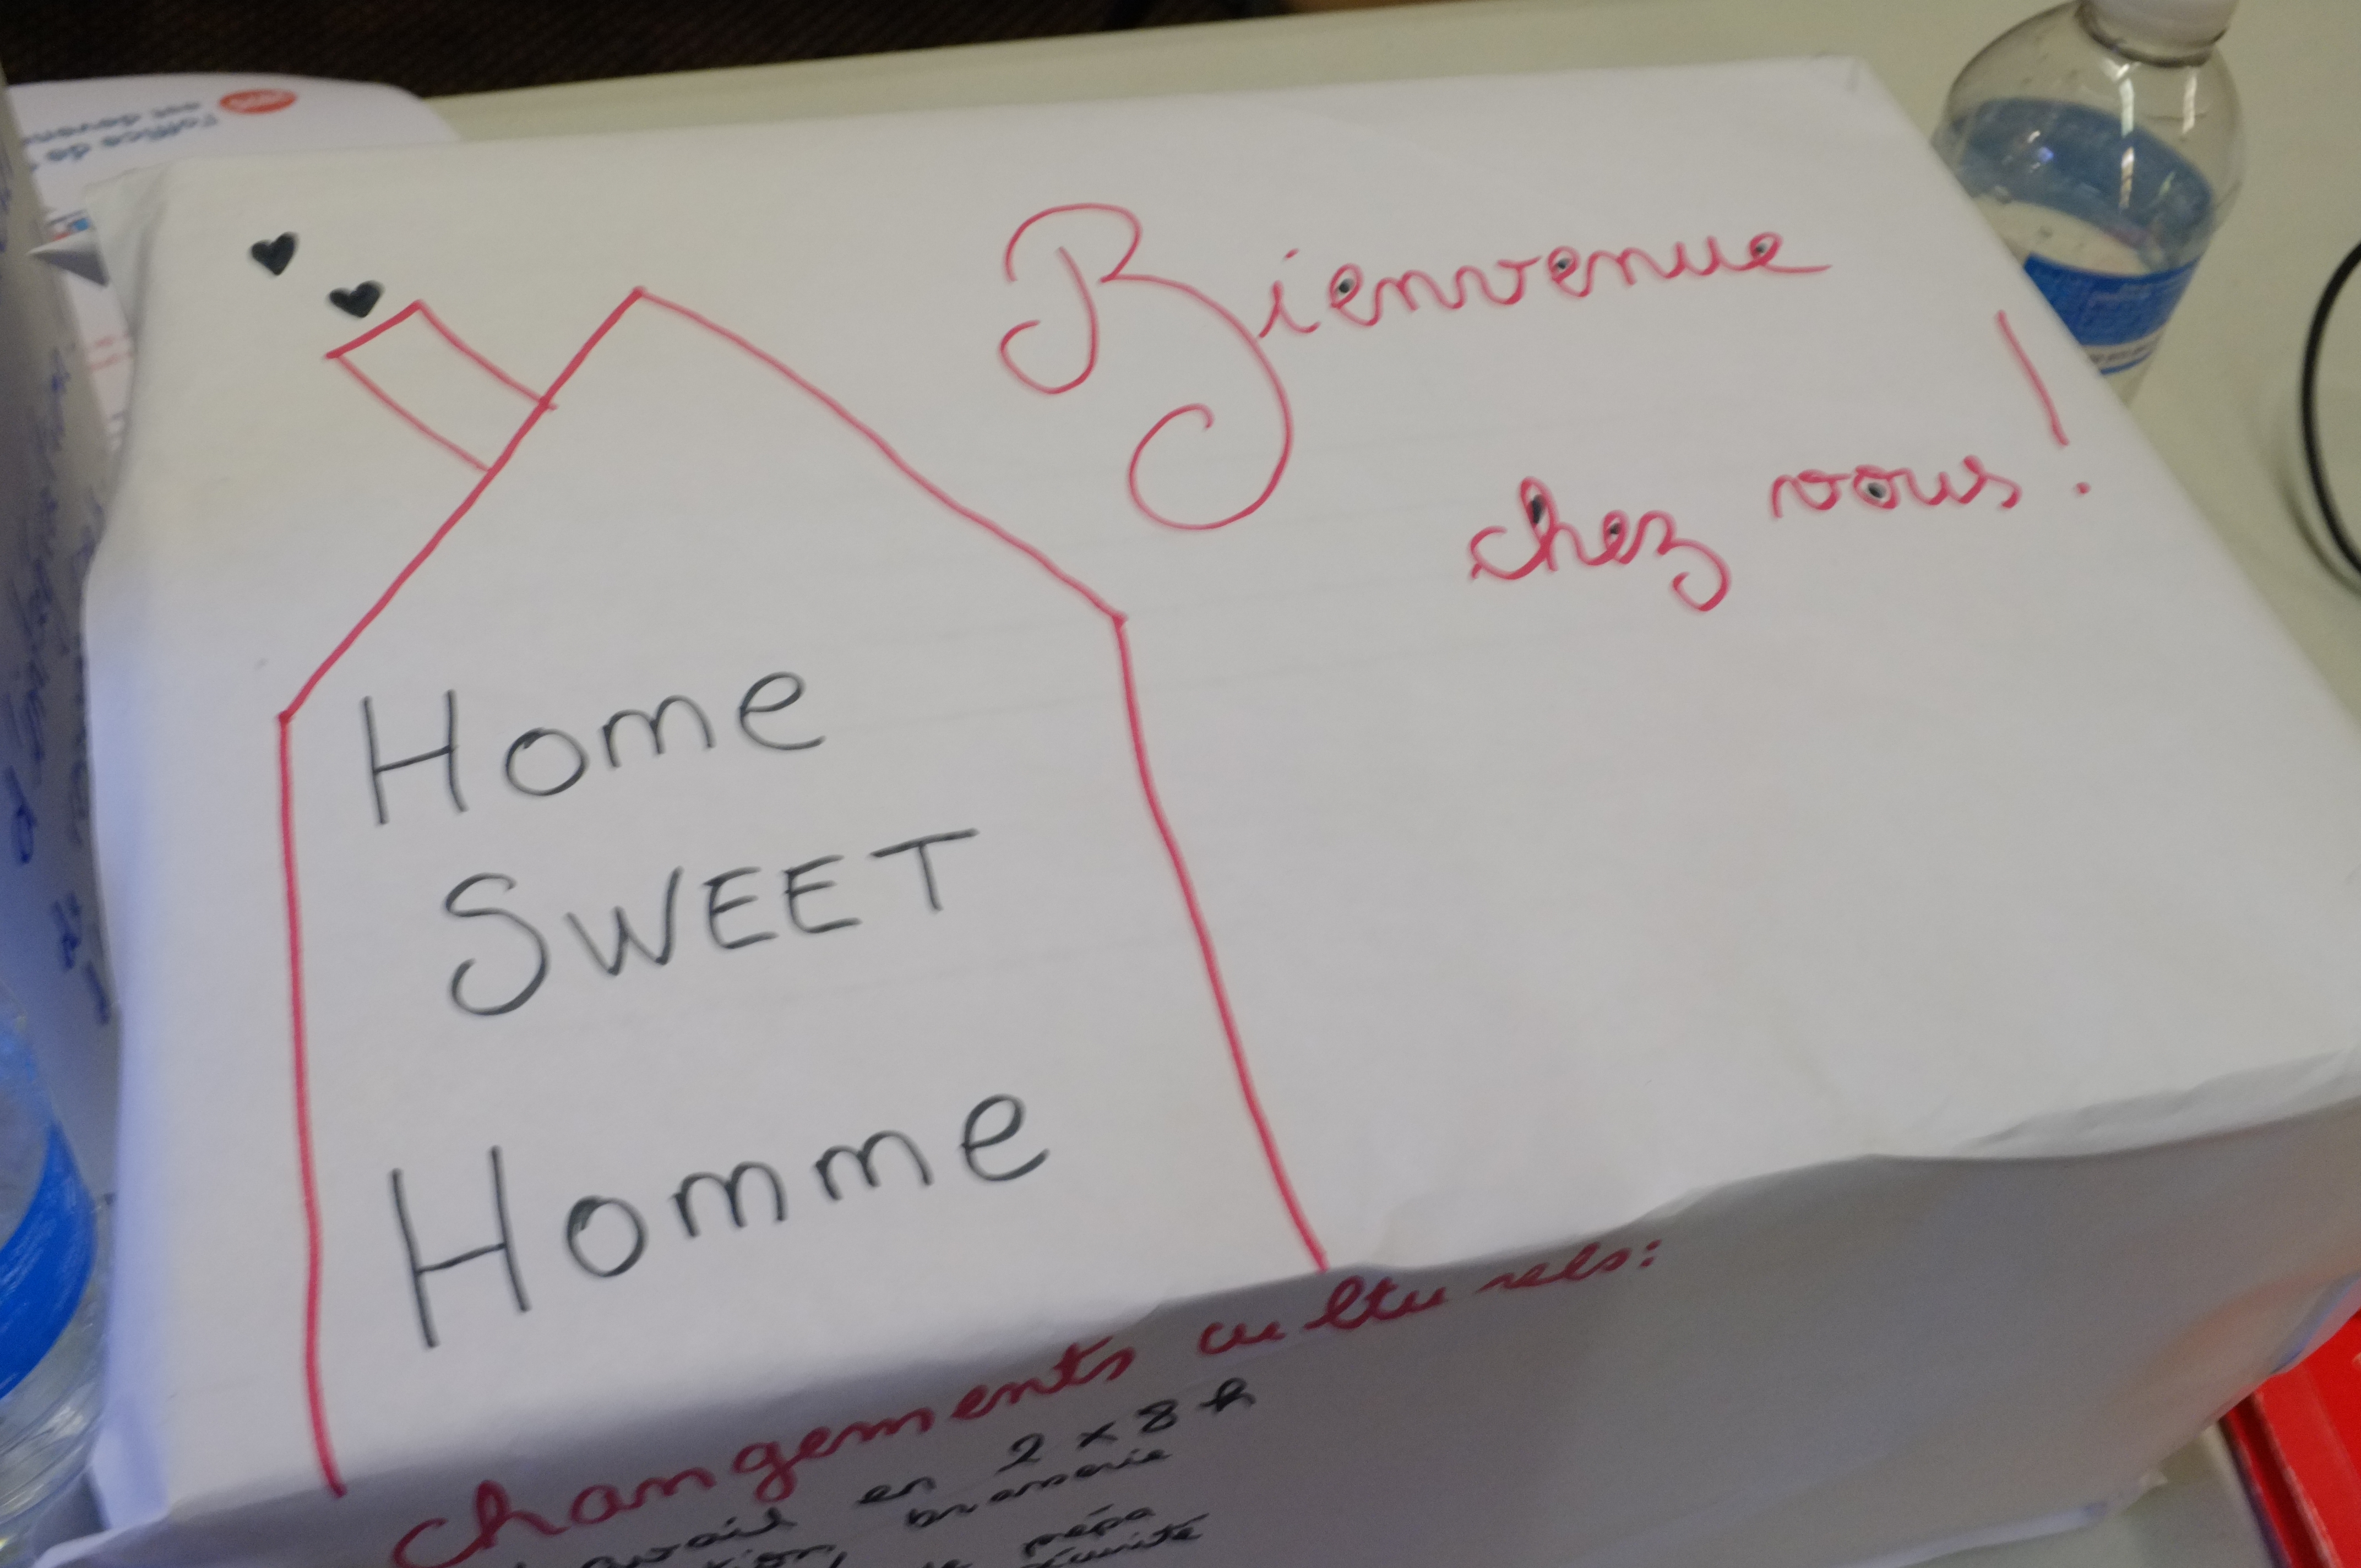 Bienvenue
chez vous !
Home
SWEET
Homme
changements culturels:
en 2 x 8 h
brasserie